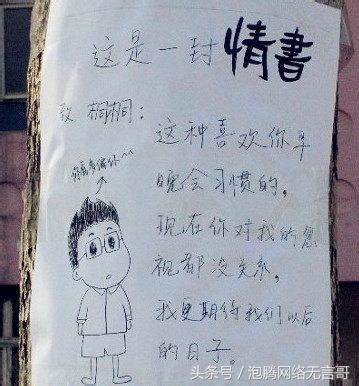 这是一封情書
致 桐桐：
你看多像你^^
这种喜欢你早
晚会习惯的，
现在你对我的忽
视都没关系，
我更期待我们以后
的日子。
头条号／泡腾网络无言哥